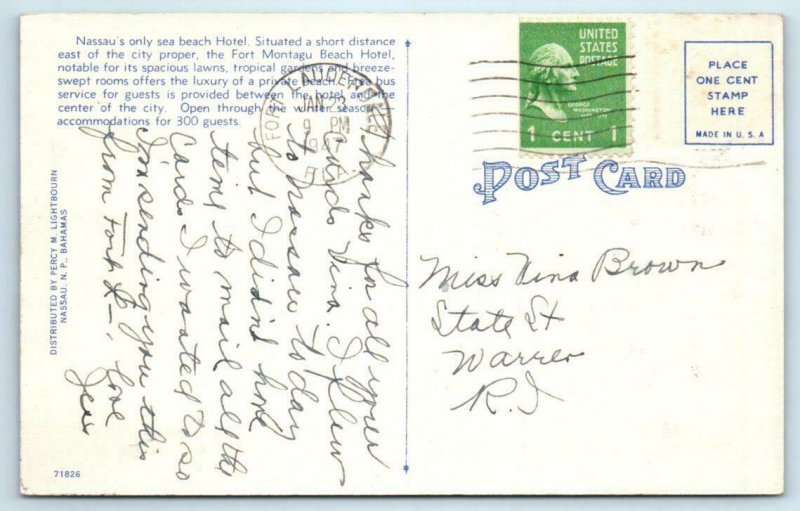 Nassau's only sea beach Hotel. Situated a short distance
east of the city proper, the Fort Montagu Beach Hotel,
notable for its spacious lawns, tropical gardens and breeze-
swept rooms offers the luxury of a private beach. Free bus
service for guests is provided between the hotel and the
center of the city. Open through the winter season,
accommodations for 300 guests.
Thanks for all your
cards Vina. I flew
to Nassau to-day
but I didn't have
time to mail all the
cards I wanted to so
I'm sending you this
from Fort L—, love
DISTRIBUTED BY PERCY M. LIGHTBOURN
NASSAU, N. P., BAHAMAS
71826
FORT LAUDERDALE
JAN 23
9 PM
194
FLA
UNITED
STATES
POSTAGE
GEORGE
WASHINGTON
1 CENT 1
PLACE
ONE CENT
STAMP
HERE
MADE IN U. S. A
POST CARD
Miss Vina Brown
State St
Warren
R.I